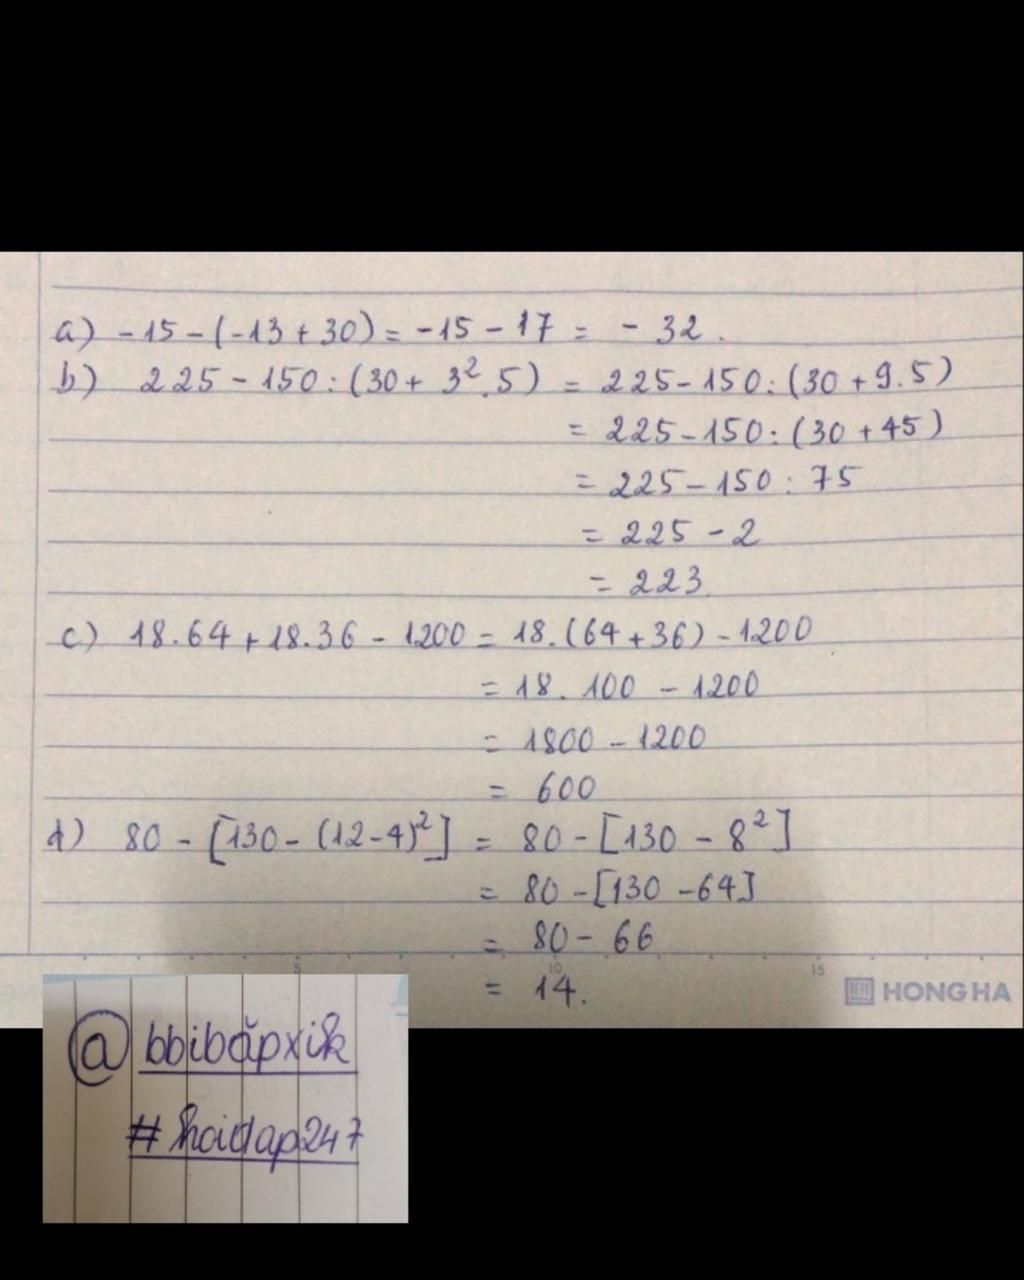 a) -15-(-13+30) = -15-17 = -32.
b) 225-150:(30+3².5) = 225-150:(30+9.5)
= 225-150:(30+45)
= 225-150:75
= 225-2
= 223
c) 18.64+18.36-1200 = 18.(64+36)-1200
= 18.100-1200
= 1800-1200
= 600
d) 80-[130-(12-4)²] = 80-[130-8²]
= 80-[130-64]
= 80-66
= 14.
5 10 15
HH HONG HA
@bbibăpxik
#hoidap247